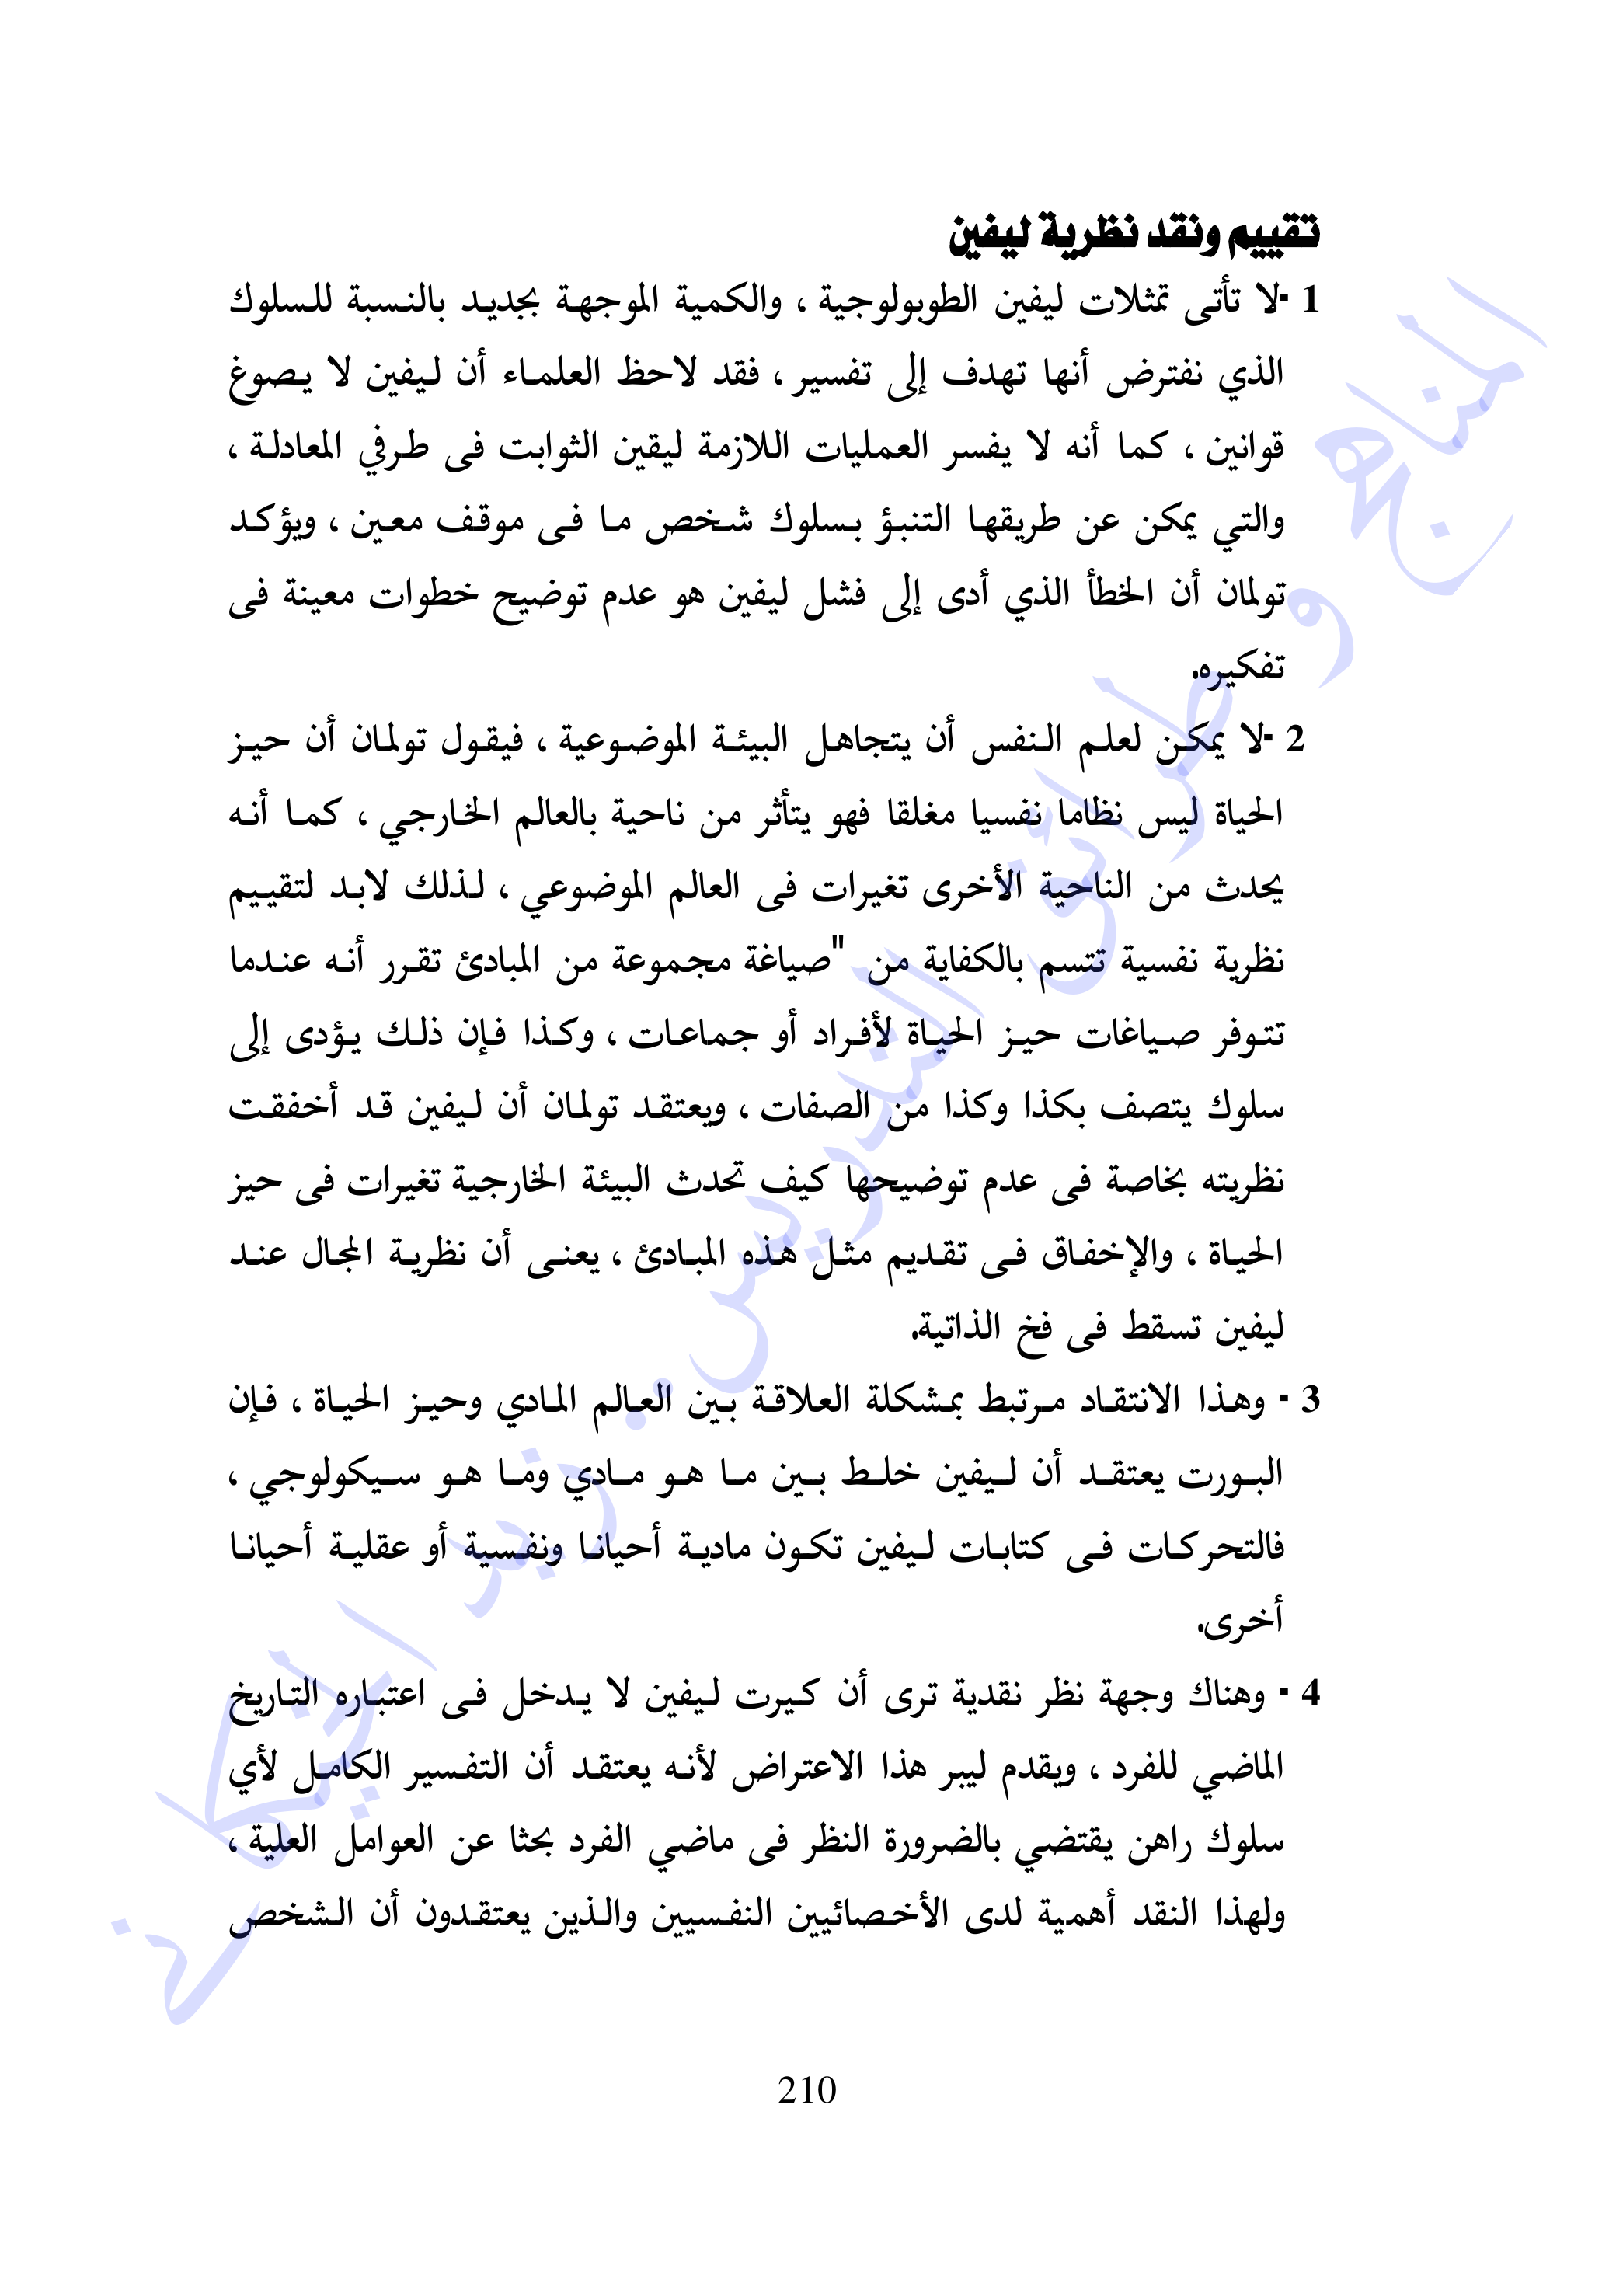 تقييم ونقد نظرية ليفين
1 -لا تأتى تمثلات ليفين الطوبولوجية ، والكمية الموجهة بجديد بالنسبة للسلوك
الذي نفترض أنها تهدف إلى تفسير ، فقد لاحظ العلماء أن ليفين لا يصوغ
قوانين ، كما أنه لا يفسر العمليات اللازمة ليقين الثوابت فى طرفي المعادلة ،
والتي يمكن عن طريقها التنبؤ بسلوك شخص ما فى موقف معين ، ويؤكد
تولمان أن الخطأ الذي أدى إلى فشل ليفين هو عدم توضيح خطوات معينة فى
تفكيره.
2 -لا يمكن لعلم النفس أن يتجاهل البيئة الموضوعية ، فيقول تولمان أن حيز
الحياة ليس نظاما نفسيا مغلقا فهو يتأثر من ناحية بالعالم الخارجي ، كما أنه
يحدث من الناحية الأخرى تغيرات فى العالم الموضوعي ، لذلك لابد لتقييم
نظرية نفسية تتسم بالكفاية من "صياغة مجموعة من المبادئ تقرر أنه عندما
تتوفر صياغات حيز الحياة لأفراد أو جماعات ، وكذا فإن ذلك يؤدى إلى
سلوك يتصف بكذا وكذا من الصفات ، ويعتقد تولمان أن ليفين قد أخفقت
نظريته بخاصة فى عدم توضيحها كيف تحدث البيئة الخارجية تغيرات فى حيز
الحياة ، والإخفاق فى تقديم مثل هذه المبادئ ، يعنى أن نظرية المجال عند
ليفين تسقط فى فخ الذاتية.
3 - وهذا الانتقاد مرتبط بمشكلة العلاقة بين العالم المادي وحيز الحياة ، فإن
البورت يعتقد أن ليفين خلط بين ما هو مادي وما هو سيكولوجي ،
فالتحركات فى كتابات ليفين تكون مادية أحيانا ونفسية أو عقلية أحيانا
أخرى.
4 - وهناك وجهة نظر نقدية ترى أن كيرت ليفين لا يدخل فى اعتباره التاريخ
الماضي للفرد ، ويقدم ليبر هذا الاعتراض لأنه يعتقد أن التفسير الكامل لأي
سلوك راهن يقتضي بالضرورة النظر فى ماضي الفرد بحثا عن العوامل العلية ،
ولهذا النقد أهمية لدى الأخصائيين النفسيين والذين يعتقدون أن الشخص
210
المناهج و طرائق التدريس . زيد الخيكاني